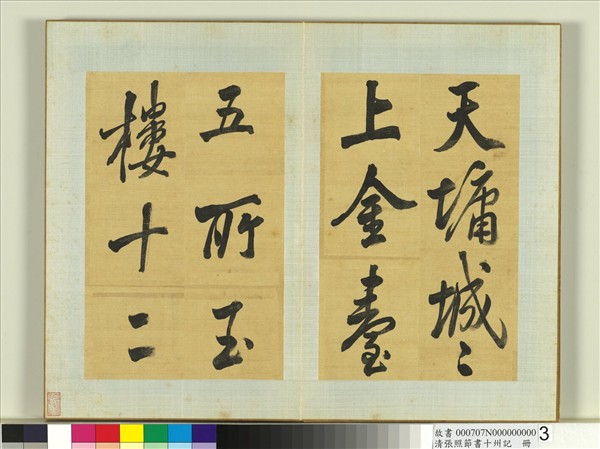 天墉城〻
上金臺
五所玉
樓十二
故書 000707N000000000 3
清張照節書十州記 冊